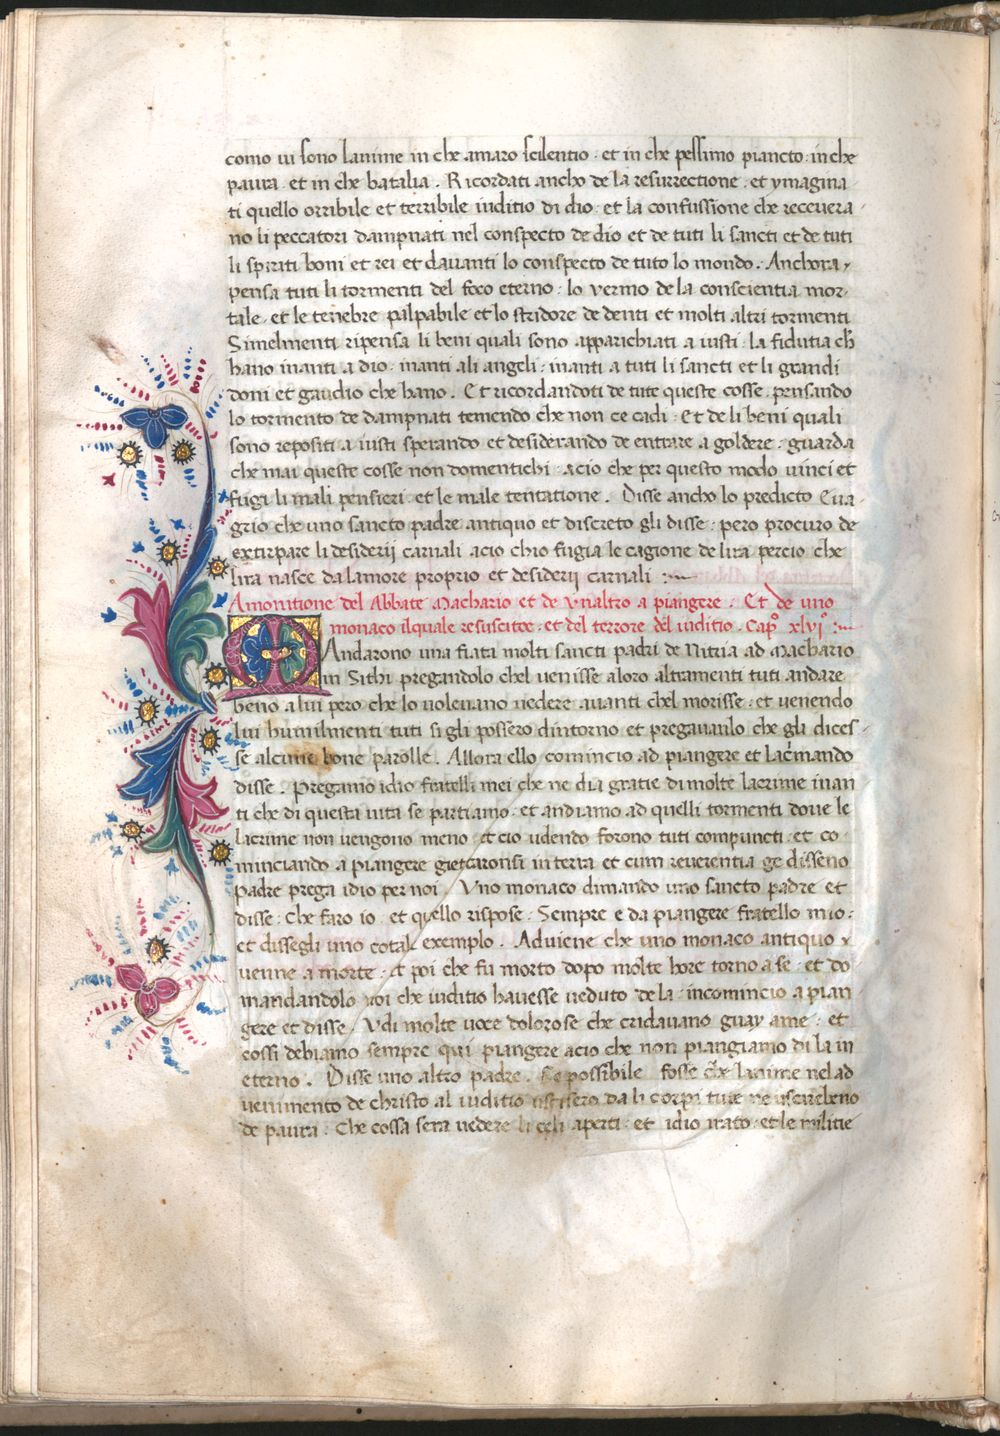 como iui sono lanime in che amaro scilentio · et in che pessimo piancto · in che
paura · et in che batalia . Ricordati ancho de la resurrectione · et ymagina
ti quello orribile et terribile iuditio di dio · et la confussione che recevera
no li peccatori dampnati nel conspecto de dio et de tuti li sancti et de tuti
li spiriti boni et rei et davanti lo conspecto de tuto lo mondo . Anchora
pensa tuti li tormenti del foco eterno · lo vermo de la conscientia mor
tale · et le tenebre palpabile et lo stridore de denti et molti altri tormenti
Simelmenti ripensa li beni quali sono apparichiati a iusti · la fidutia ch
hano inanti a dio · inanti ali angeli · inanti a tuti li sancti et li grandi
doni et gaudio che hano . Et ricordandoti de tute queste cosse · pensando
lo tormento de dampnati temendo che non ce cadi · Et de li beni quali
sono repositi a iusti sperando et desiderando de entrare a goldere · guarda
che mai queste cosse non domentichi · acio che per questo modo vinci et
fugi li mali pensieri · et le male tentatione . Disse ancho lo predicto Eua
grio che uno sancto padre antiquo et discreto gli disse · pero procuro de
extirpare li desiderij carnali acio chio fugia le cagione de lira percio che
lira nasce da lamore proprio et desiderij carnali :
Amonitione del Abbate Machario et de vnaltro a piangere . Et de uno
monaco il quale resuscitoe · et del terrore del iuditio . Capo xlvi :
MAndarono una fiata molti sancti padri de Nitria ad Machario
in Sithi pregandolo chel venisse a loro altramenti tuti andare
beno a lui pero che lo volevano vedere avanti chel morisse · et venendo
lui humilmenti tuti si gli possero dintorno et pregavanlo che gli dices
se alcune bone parolle . Allora ello comincio ad piangere et lacrimando
disse . Pregamo idio fratelli mei che ne dia gratie di molte lacrime inan
ti che di questa vita se partiamo · et andiamo ad quelli tormenti dove le
lacrime non vengono meno · et cio udendo forono tuti compuncti · et co
minciando a piangere gietaronsi in terra et cum reverentia ge disseno
padre prega idio per noi . Uno monaco dimando uno sancto padre et
disse · Che faro io · et quello rispose · Sempre e da piangere fratello mio ·
et dissegli uno cotale exemplo . Adviene che uno monaco antiquo
venne a morte · et poi che fu morto dopo molte hore torno a se · et do
mandandolo noi che iuditio havesse veduto de la · incomincio a pian
gere et disse . Udi molte voce dolorose che cridavano guay ame · et
cossi debiamo sempre qui piangere acio che non piangiamo di la in
eterno . Disse uno altro padre . Se possibile fosse che lanime nel ad
venimento de christo al iuditio uscisero da li corpi tute ne uscirebeno
de paura . Che cossa sera vedere li celi aperti · et idio irato · et le militie